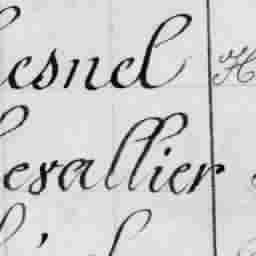 esnel H
evallier